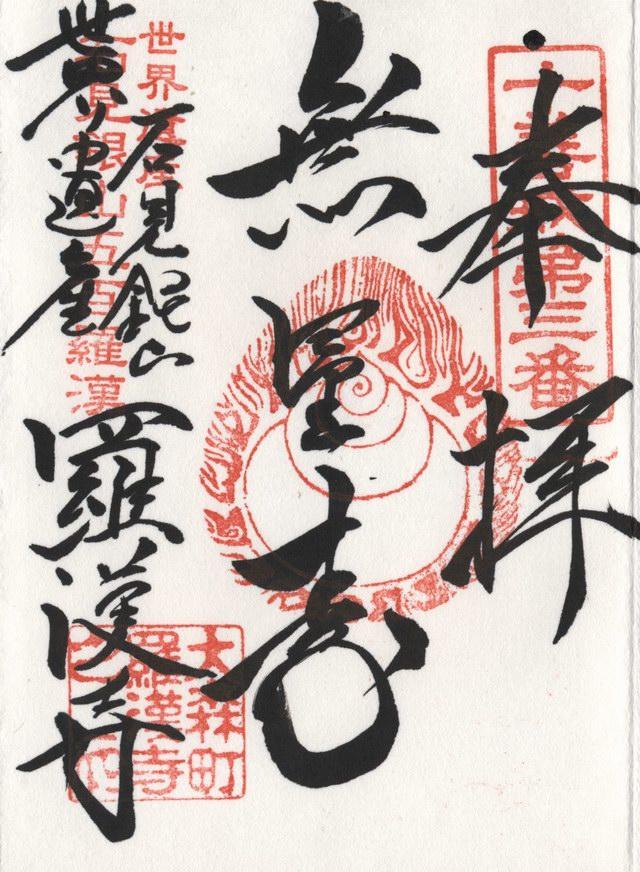 奉拝
十善戒第三番
無量寿
石見銀山
世界遺産
羅漢寺
世界遺産
石見銀山五百羅漢
大森町
羅漢寺
之印